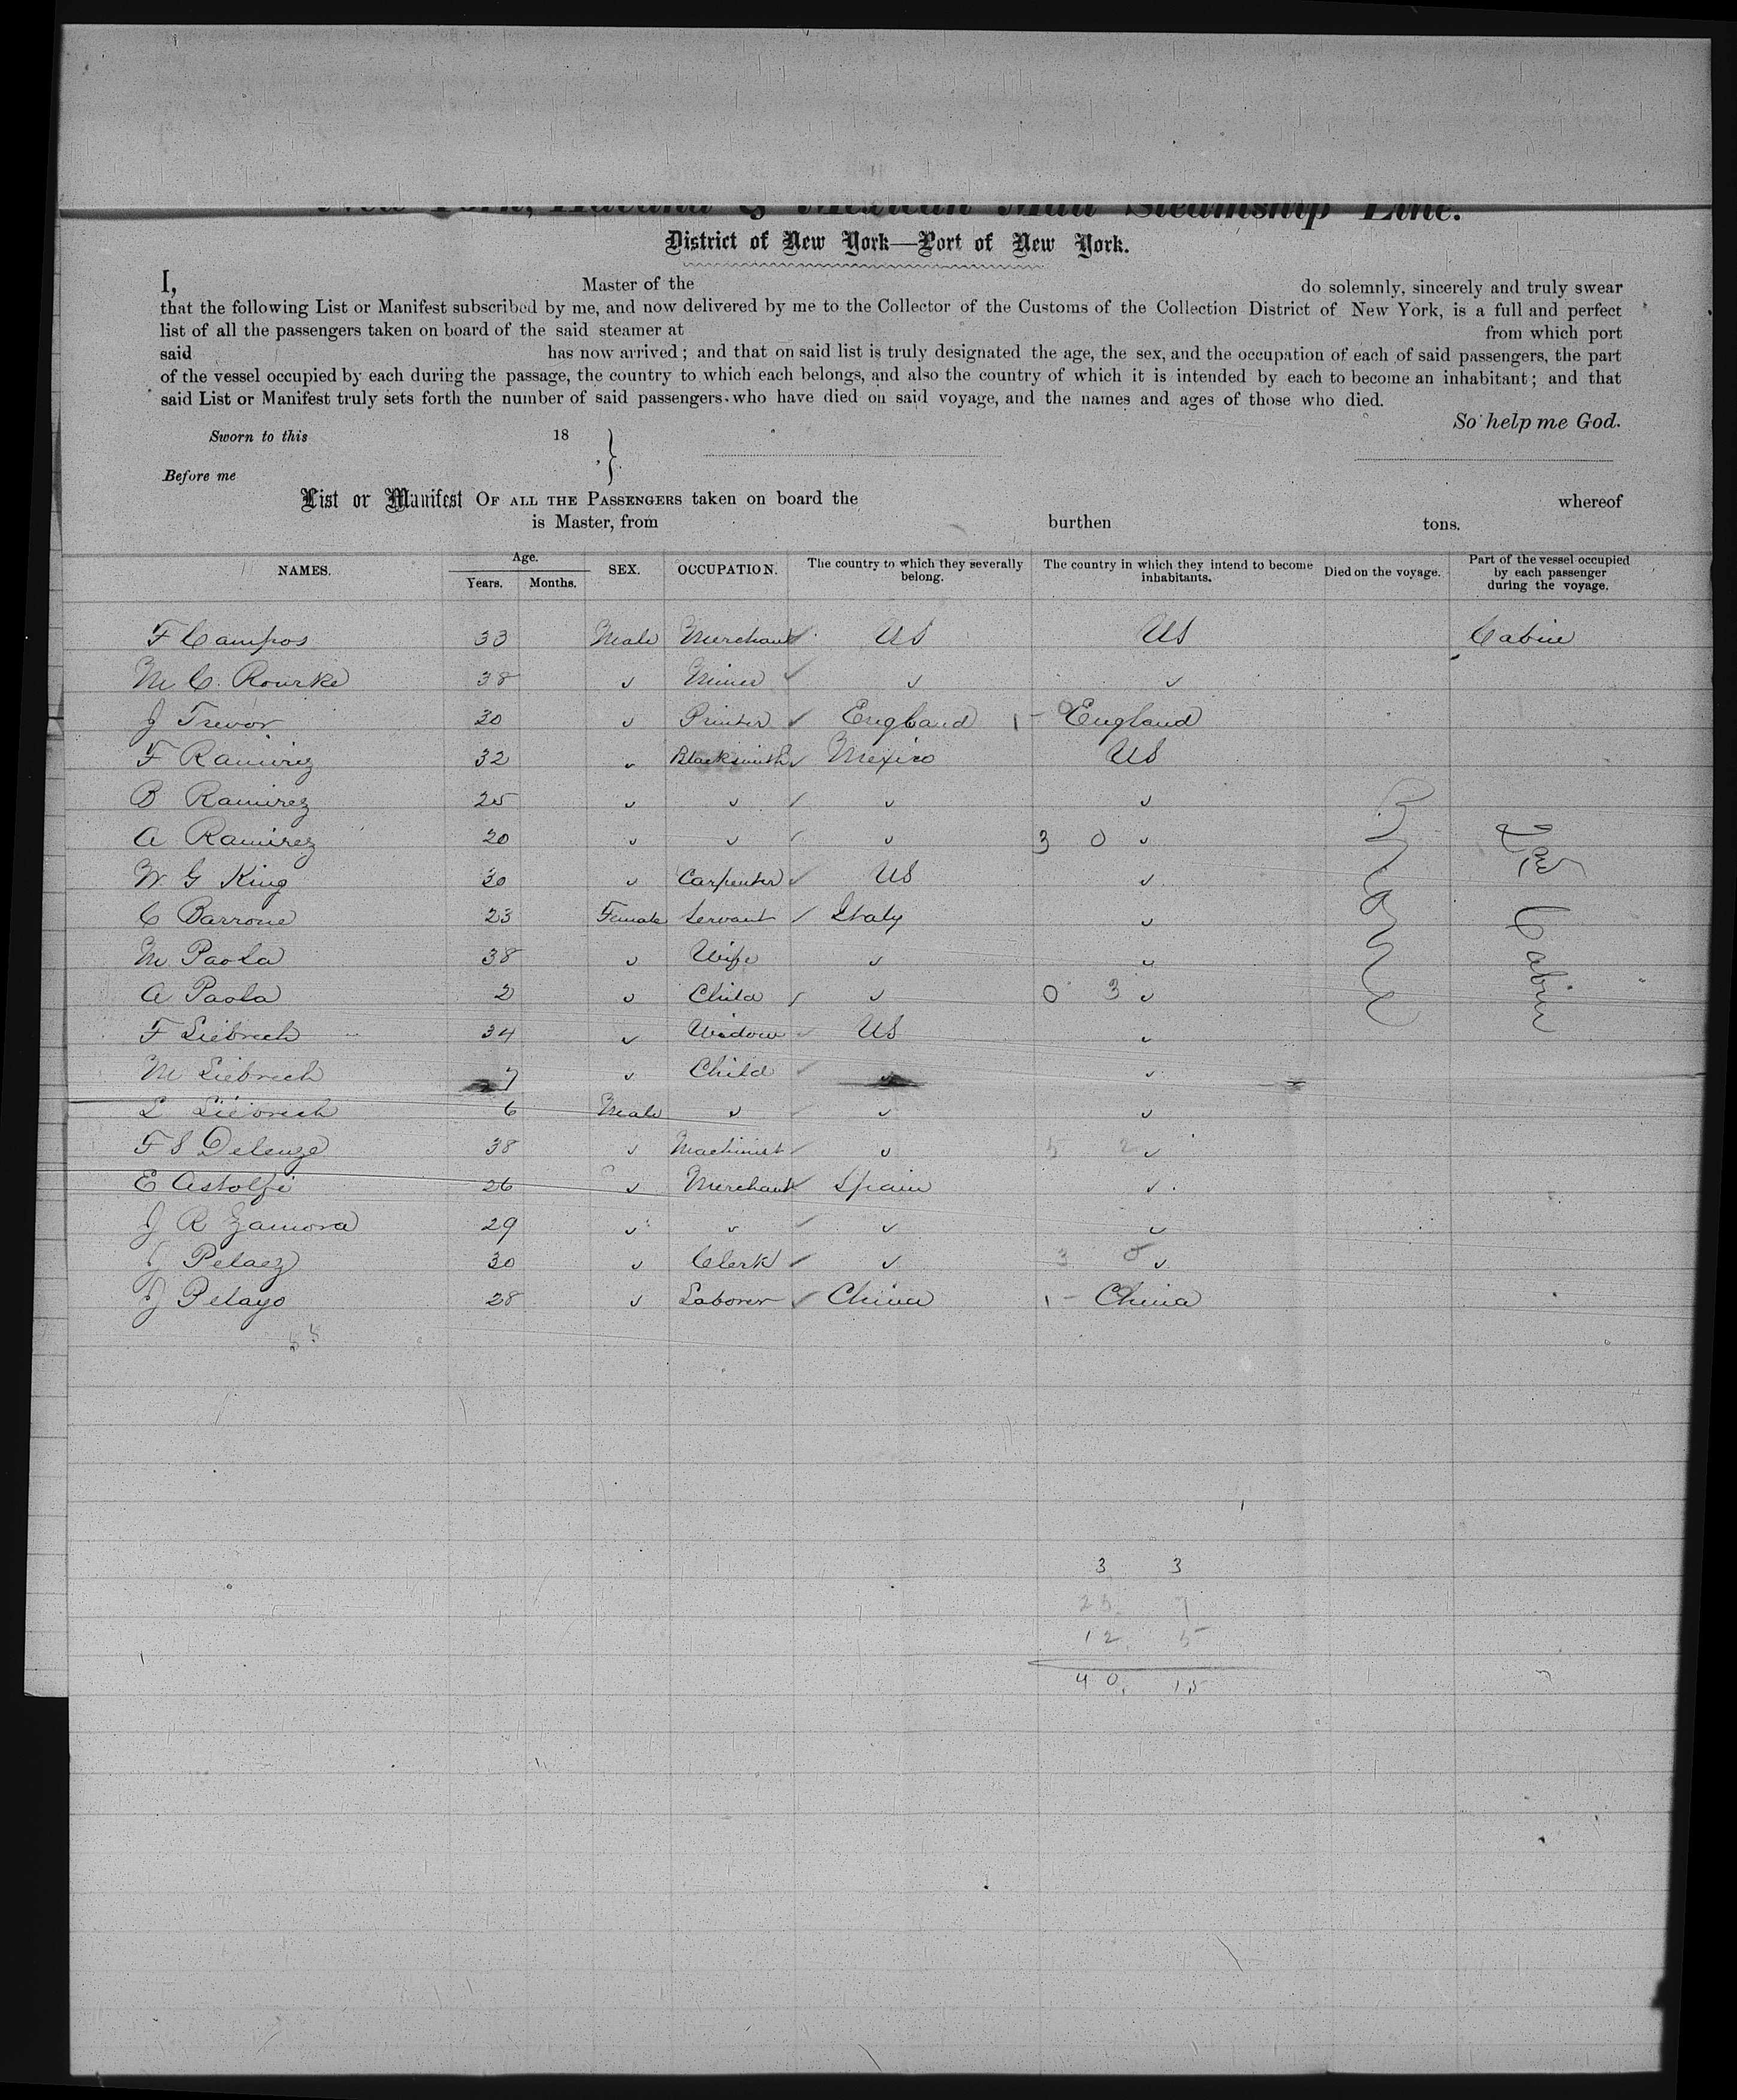 New York, Havana & Mexican Mail Steamship Line.
District of New York—Port of New York.
I, Master of the do solemnly, sincerely and truly swear
that the following List or Manifest subscribed by me, and now delivered by me to the Collector of the Customs of the Collection District of New York, is a full and perfect
list of all the passengers taken on board of the said steamer at from which port
said has now arrived; and that on said list is truly designated the age, the sex, and the occupation of each of said passengers, the part
of the vessel occupied by each during the passage, the country to which each belongs, and also the country of which it is intended by each to become an inhabitant; and that
said List or Manifest truly sets forth the number of said passengers who have died on said voyage, and the names and ages of those who died.
So help me God.
Sworn to this 18
Before me
List or Manifest OF ALL THE PASSENGERS taken on board the whereof
is Master, from burthen tons.
NAMES. Age. Years. Months. SEX. OCCUPATION. The country to which they severally belong. The country in which they intend to become inhabitants. Died on the voyage. Part of the vessel occupied by each passenger during the voyage.
F Campos 33 Male Merchant ✓ US US Cabin
M C. Rourke 38 ✓ Miner ✓ ✓ ✓
J Trevor 30 ✓ Printer ✓ England 1 - 0 England
F Ramirez 32 ✓ Blacksmith ✓ Mexico US
B Ramirez 25 ✓ ✓ ✓ ✓ ✓
A Ramirez 20 ✓ ✓ ✓ ✓ 3 0 ✓
W. G King 30 ✓ Carpenter ✓ US ✓
C Barrone 23 Female Servant ✓ Italy ✓
M Paola 38 ✓ Wife ✓ ✓
A Paola 2 ✓ Child ✓ ✓ 0 3 ✓
F Liebrech 34 ✓ Widow ✓ US ✓
M Liebrech 7 ✓ Child ✓ ✓ ✓
L Liebrech 6 Male ✓ ✓ ✓ ✓
F S Delenze 38 ✓ Machinist ✓ ✓ 5 2 ✓
E Astolfi 26 ✓ Merchant ✓ Spain ✓
J R Zamora 29 ✓ ✓ ✓ ✓ ✓
J Pelaez 30 ✓ Clerk ✓ ✓ 3 0 ✓
J Pelayo 28 ✓ Laborer ✓ China 1 - China
Cabin
3 3
25 7
12 5
40. 15